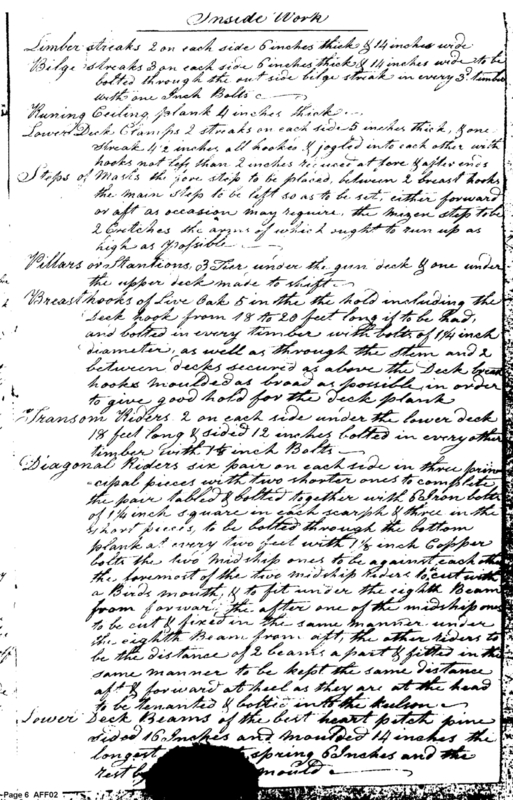 Inside Work
Limber streaks 2 on each side 6 inches thick & 14 inches wide
Bilge streaks 3 on each side 6 inches thick & 14 inches wide to be
bolted through the out side bilge streak in every 3d. timber
with one Inch Bolts
Runing Ceiling plank 4 inches thick
Lower Deck Clamps 2 streaks on each side 5 inches thick, & one
streak 4½ inches all hooked & jogled into each other with
hooks not less than 2 inches at fore & after ends
Steps of Masts the fore step to be placed between 2 breast hooks
the main step to be left so as to be set, either forward
or aft as occasion may require, the mizen step to be
2 Cretches the arms of which ought to run up as
high as possible
Pillars or Stantions 3 Tier, under the gun deck & one under
the upper deck made to shift
Breast hooks of Live Oak 5 in the the hold including the
deck hook from 18 to 20 feet long if to be had,
and bolted in every timber with bolts of 1¼ inch
diameter, as well as through the Stem and 2
between decks secured as above the Deck breast
hooks moulded as broad as possible in order
to give good hold for the deck plank
Transom Riders 2 on each side under the lower deck
18 feet long & sided 12 inches bolted in every other
timber with 1⅛ inch Bolts
Diagonal Riders six pair on each side in three prin
cipal pieces with two shorter ones to complete
the pair tabled & bolted together with 6 Iron bolts
of 1¼ inch square in each scarph & three in the
short pieces, to be bolted through the bottom
plank at every two feet with 1⅛ inch Copper
bolts the two midship ones to be against each other
the foremost of the two midship riders to, cut with
a Birds mouth, & to fit under the eighth Beam
from forward the after one of the midship ones
to be cut & fixed in the same manner under
the eighth Beam from aft, the other riders to
be the distance of 2 beams apart & fitted in the
same manner to be kept the same distance
aft & forward at heel as they are at the head
to be tenanted & bolted into the keelson
Lower Deck Beams of the best heart pitch pine
sided 16 Inches and moulded 14 inches the
longest spring 6 Inches and the
rest mould
Page 6 AFF02